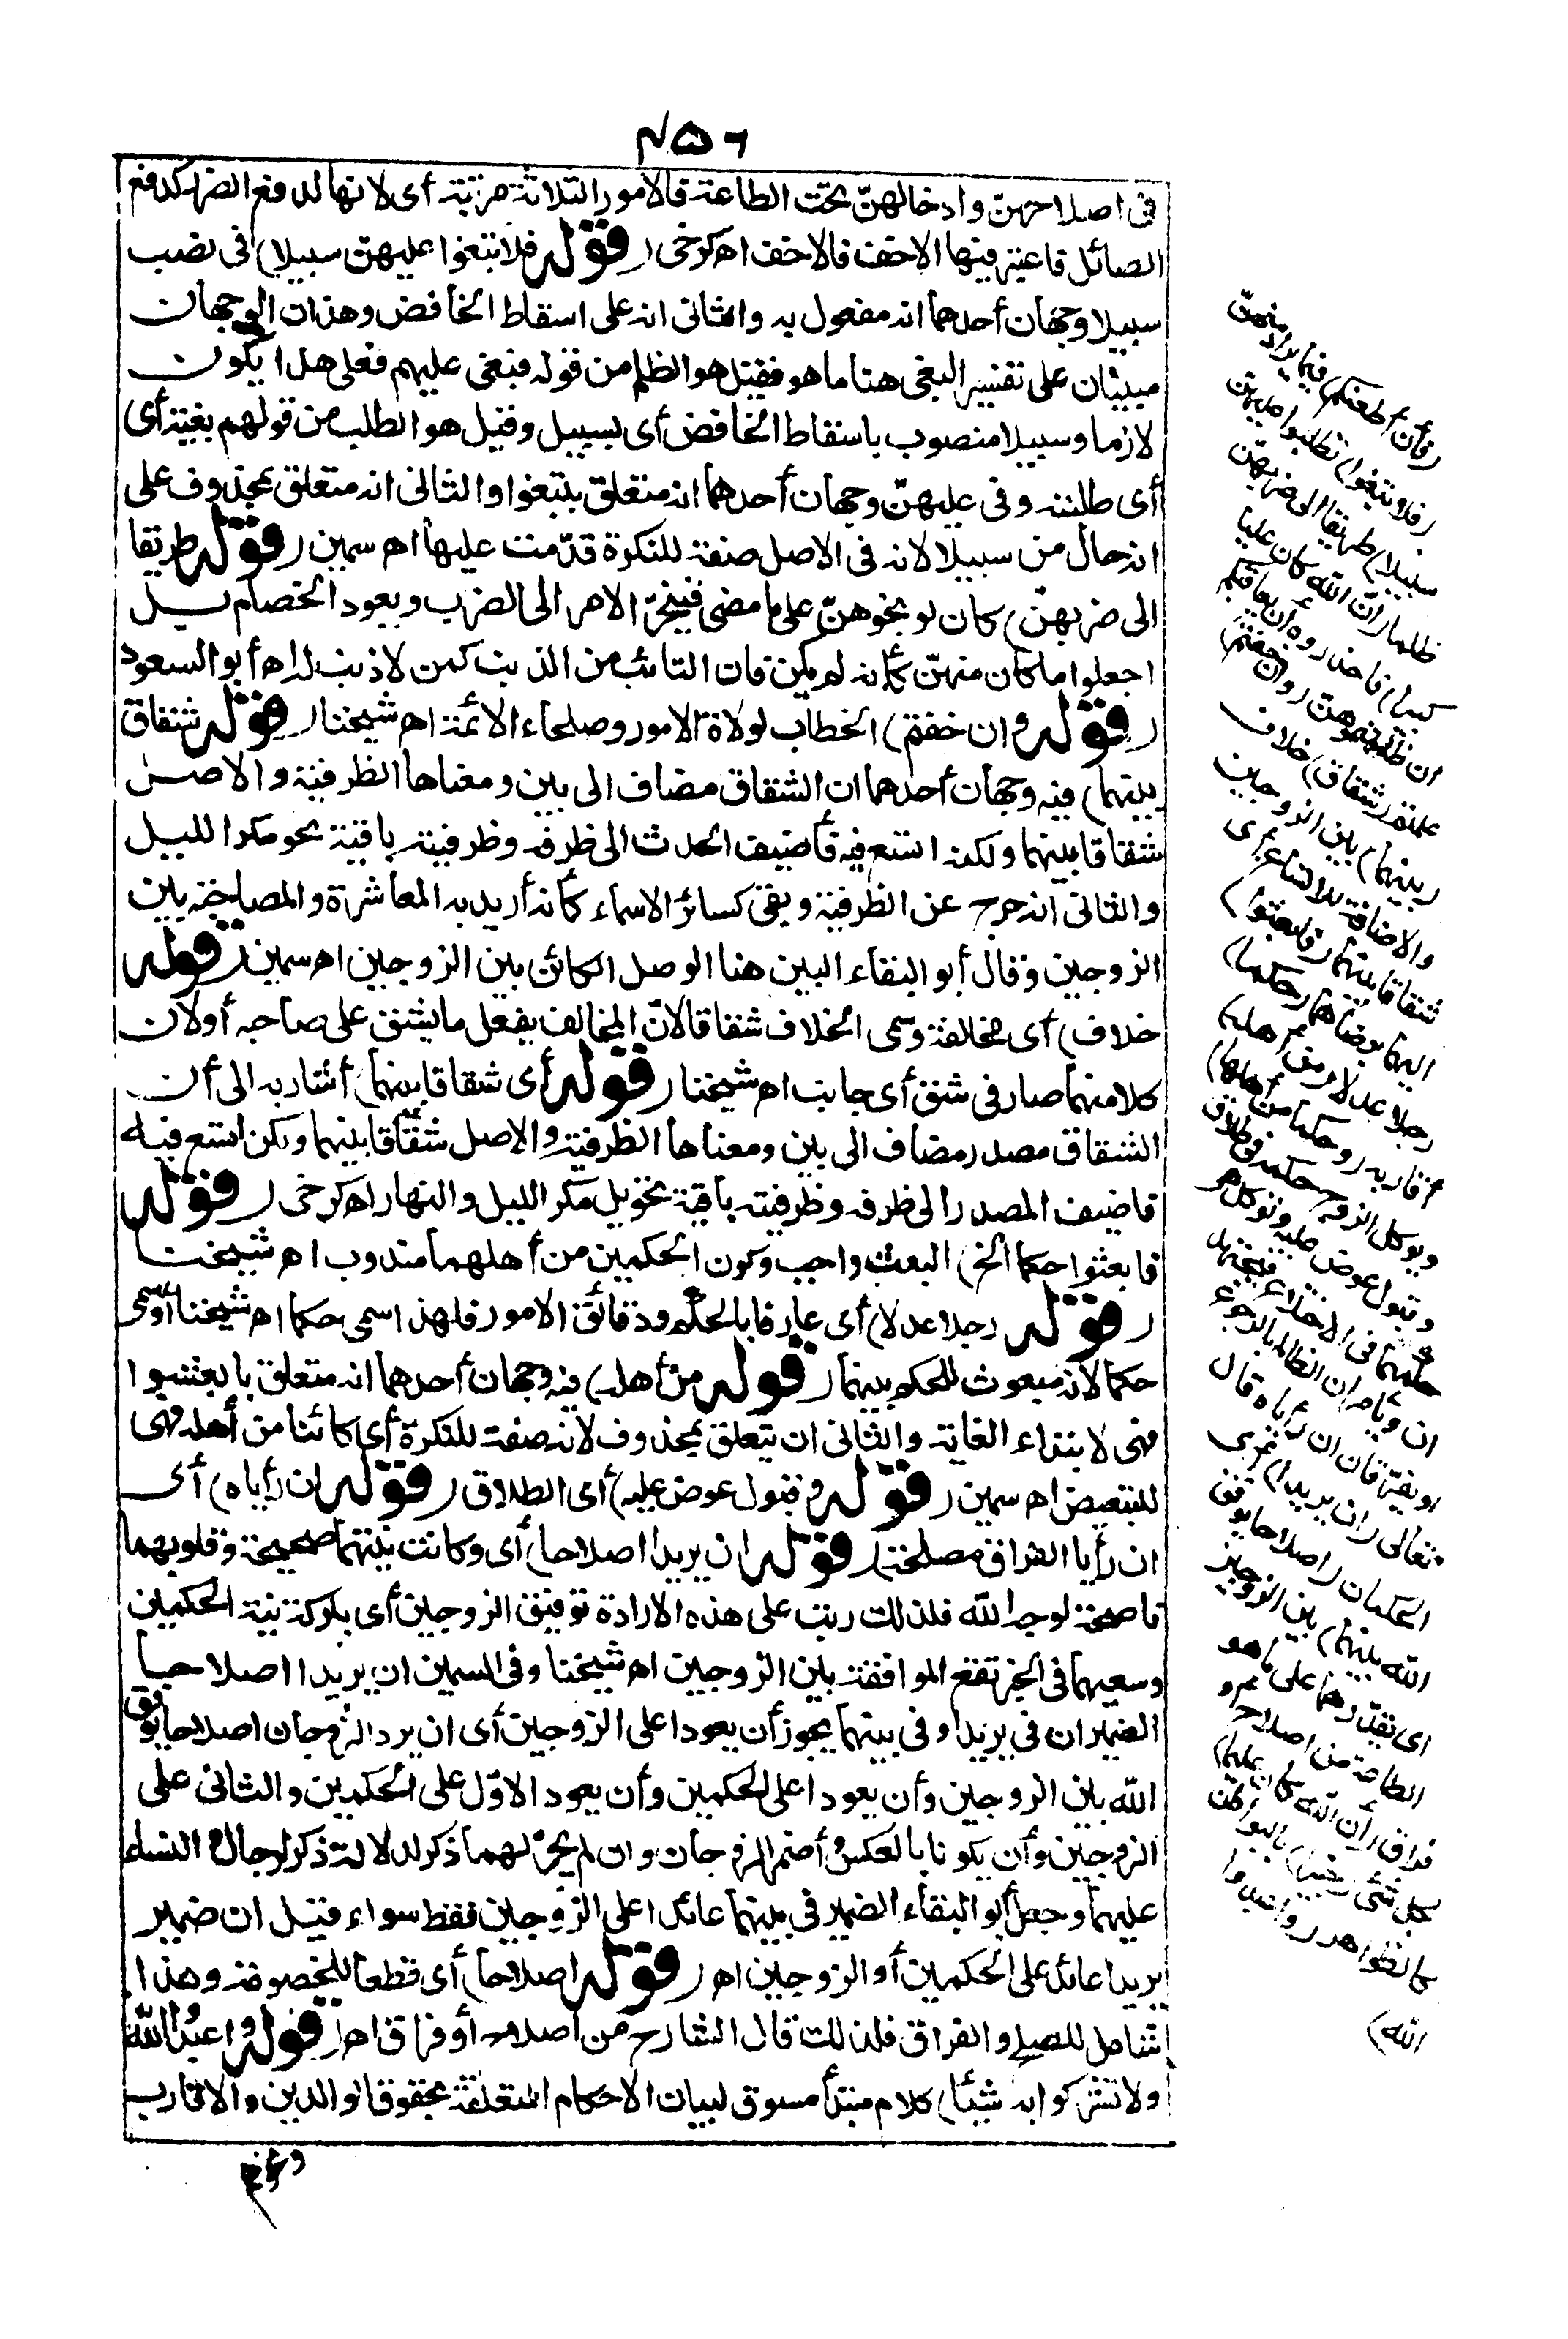 ٤٥٦
في اصلاحهنّ وادخالهنّ تحت الطاعة فالامور الثلاثة مرتبة أى لانها لدفع الضرر كدفع
الصائل فاعتبر فيها الاخف فالاخف اه كرخى (قوله فلا تبغوا عليهنّ سبيلا) فى نصب
سبيلا وجهان أحدهما انه مفعول به والثانى انه على اسقاط الخافض وهذان الوجهان
مبنيان على تفسير البغى هنا ما هو فقيل هو الظلم من قوله فبغى عليهم فعلى هذا يكون
لازما وسبيلا منصوب باسقاط الخافض أى بسبيل وقيل هو الطلب من قولهم بغيته أى
أى طلبته وفى عليهنّ وجهان أحدهما انه متعلق بتبغوا والثانى انه متعلق بمحذوف على
انه حال من سبيلا لانه فى الاصل صفة للنكرة قدّمت عليها اه سمين (قوله طريقا
الى ضربهن) كان لو بخوهنّ على ما مضى فينجرّ الامر الى الضرب ويعود الخصام بل
اجعلوا ما كان منهنّ كأنه لم يكن فان التائب من الذنب كمن لا ذنب له اه أبو السعود
(قوله وان خفتم) الخطاب لولاة الامور وصلحاء الائمة اه شيخنا (قوله شقاق
بينهما) فيه وجهان أحدهما ان الشقاق مضاف الى بين ومعناها الظرفية والاصل
شقاقا بينهما ولكنه اتسع فيه فأضيف الحدث الى ظرفه وظرفيته باقية نحو مكر الليل
والثانى انه خرج عن الظرفية وبقى كسائر الاسماء كأنه أريد به المعاشرة والمصاحبة بين
الزوجين وقال أبو البقاء البين هنا الوصل الكائن بين الزوجين اه سمين (قوله
خلاف) أى مخالفة وسمى الخلاف شقاقا لانّ المخالف يفعل ما يشق على صاحبه أو لان
كلا منهما صار فى شق أى جانب اه شيخنا (قوله أى شقاقا بينهما) أشار به الى أن
الشقاق مصدر مضاف الى بين ومعناها الظرفية والاصل شقاقا بينهما ولكن اتسع فيه
فاضيف المصدر الى ظرفه وظرفيته باقية نحو بل مكر الليل والنهار اه كرخى (قوله
فابعثوا حكما الخ) البعث واجب وكون الحكمين من أهلهما مندوب اه شيخنا
(قوله رجلا عدلا) أى عارفا بالحكم ودقائق الامور فلهذا سمى حكما اه شيخنا أو سمى
حكما لانه مبعوث للحكم بينهما (قوله من أهله) فيه وجهان أحدهما انه متعلق بابعثوا
فهى لابتداء الغاية والثانى ان يتعلق بمحذوف لانه صفة للنكرة أى كائنا من أهله فهى
للتبعيض اه سمين (قوله وقبول عوض عليه) أى الطلاق (قوله ان رأياه) أى
ان رأيا الفراق مصلحة (قوله ان يريدا اصلاحا) أى وكانت نيتهما صحيحة وقلوبهما
ناصحة لوجه الله فلذلك رتب على هذه الارادة توفيق الزوجين أى ببركة نية الحكمين
وسعيهما فى الخير تقع الموافقة بين الزوجين اه شيخنا وفى السمين ان يريدا اصلاحا
الضميران فى يريدا وفى بينهما يجوز أن يعودا على الزوجين أى ان يرد الزوجان اصلاحا يوفق
الله بين الزوجين وأن يعودا على الحكمين وأن يعود الاوّل على الحكمين والثانى على
الزوجين وأن يكونا بالعكس وأضمر الزوجان وان لم يجر لهما ذكر لدلالة ذكر الرجال والنساء
عليهما وجعل أبو البقاء الضمير فى بينهما عائدا على الزوجين فقط سواء قيل ان ضمير
يريدا عائد على الحكمين أو الزوجين اه (قوله اصلاحا) أى قطعا للخصومة وهذا
شامل للصلح والفراق فلذلك قال الشارح من اصلاح أو فراق اه (قوله واعبدوا الله
ولا تشركوا به شيئا) كلام مبتدأ مسوق لبيان الاحكام المتعلقة بحقوق الوالدين والاقارب
(فان أطعنكم) فيما يراد منهنّ
(فلا تبغوا) تطلبوا (عليهن
سبيلا) طريقا الى ضربهن
ظلما (انّ الله كان عليا
كبيرا) فاحذروه أن يعاقبكم
ان ظلمتموهن (وان خفتم)
علمتم (شقاق) خلاف
(بينهما) بين الزوجين
والاضافة للاتساع أى
شقاقا بينهما (فابعثوا)
اليهما برضاهما (حكما)
رجلا عدلا (من أهله)
أقاربه (وحكما من أهلها)
ويوكل الزوج حكمه فى طلاق
وقبول عوض عليه وتوكل هى
حكمها فى الاختلاع فيجتهد
ان ويأمران الظالم بالرجوع
أو يفرّقان ان رأياه قال
تعالى (ان يريدا) أى
الحكمان (اصلاحا يوفق
الله بينهما) بين الزوجين
اى يقدّرهما على ما هو
الطاعة من اصلاح أو
فراق (انّ الله كان عليما)
بكل شئ (خبيرا) بالبواطن
كالظواهر (واعبدوا
الله)